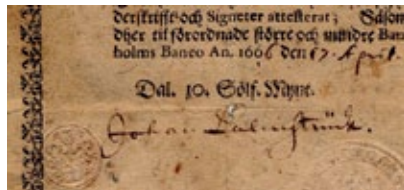 derskrifft och Signeter attesterat; Sålom
dher til förordnade större och mindre Ban
holms Banco An. 1666 den 17. April.
Dal. 10. Sölf. Mynt.
Johan